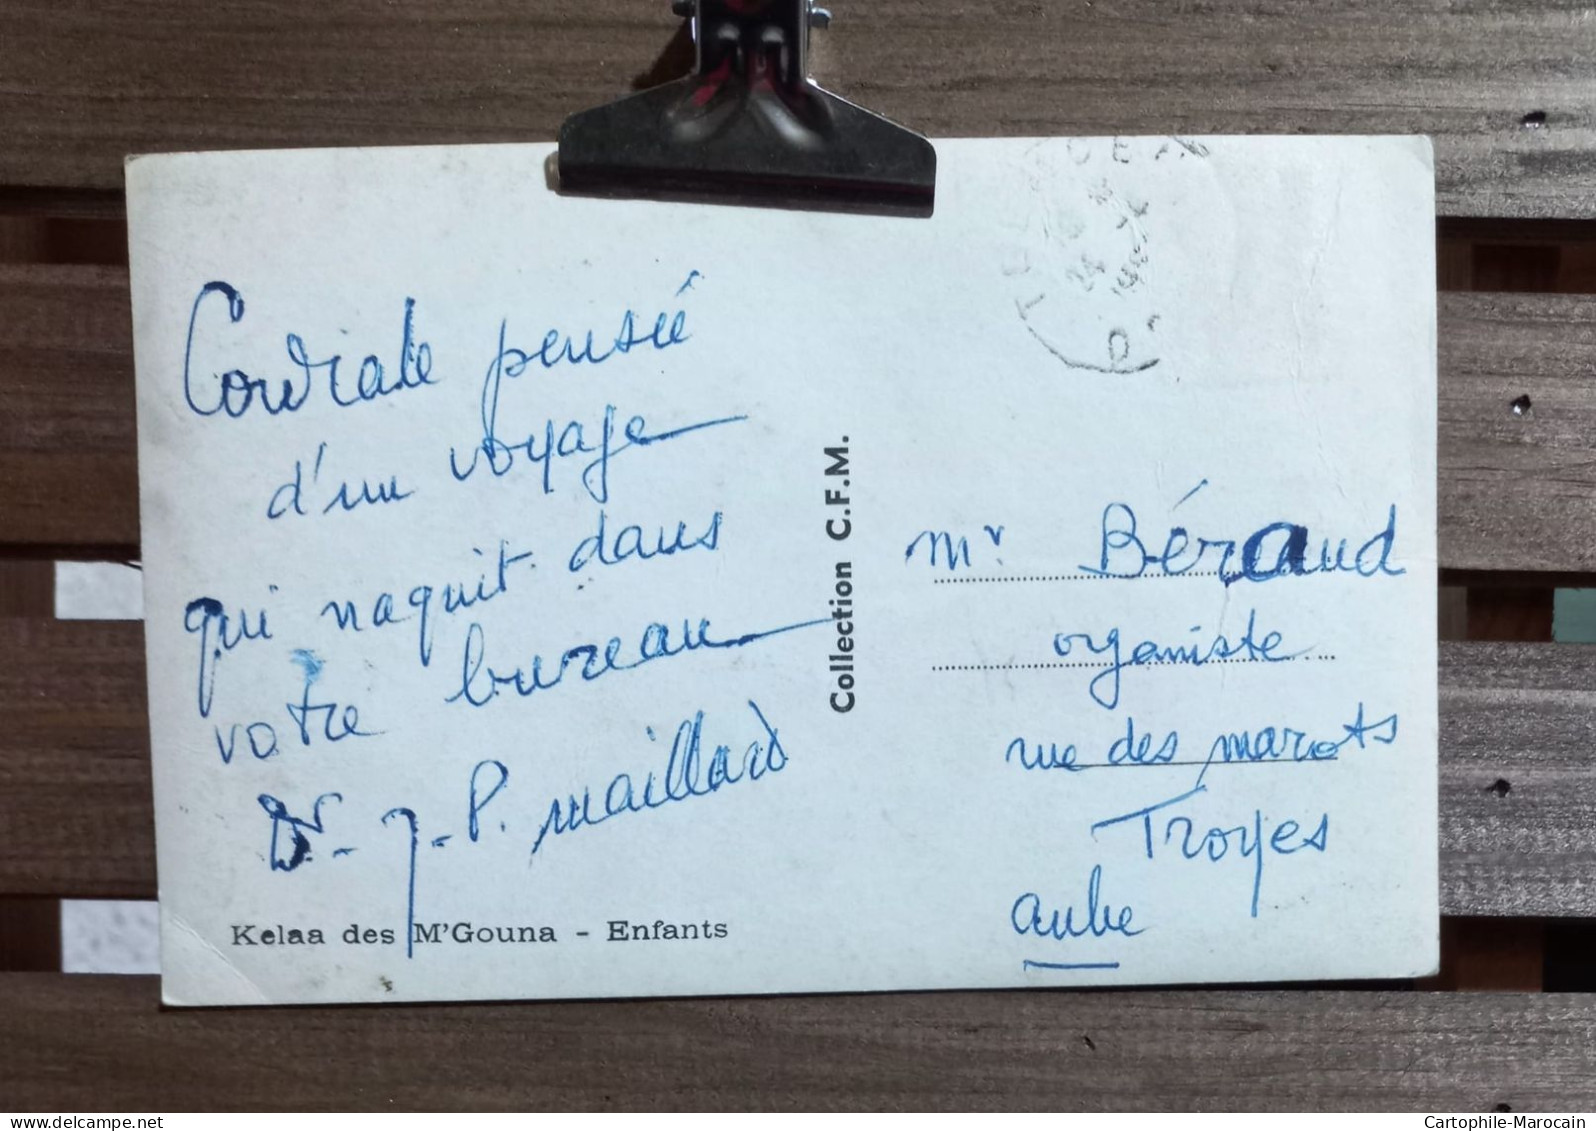 Cordiale pensée
d'un voyage
qui naquit dans
votre bureau
Dr. J-P. Maillard
Kelaa des M'Gouna - Enfants
Collection C.F.M.
Mr Béraud
organiste
rue des marots
Troyes
aube
Cartophile-Marocain